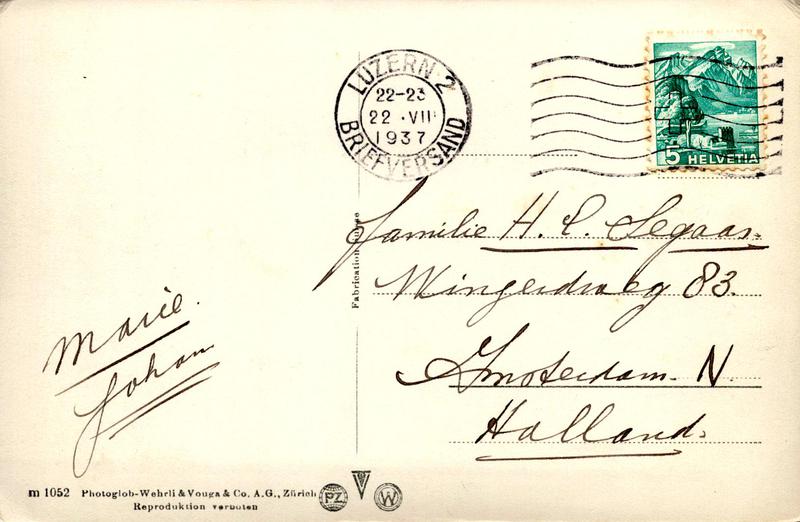 LUZERN 2
22-23
22.VII
1937
BRIEFVERSAND
5 HELVETIA
Familie H. L. Segaar.
Wingerdweg 83.
Amsterdam. N.
Holland.
Marie.
Johan
Fabrication Suisse
m 1052 Photoglob-Wehrli & Vouga & Co. A.G., Zürich
Reproduktion verboten
PZ
V
W